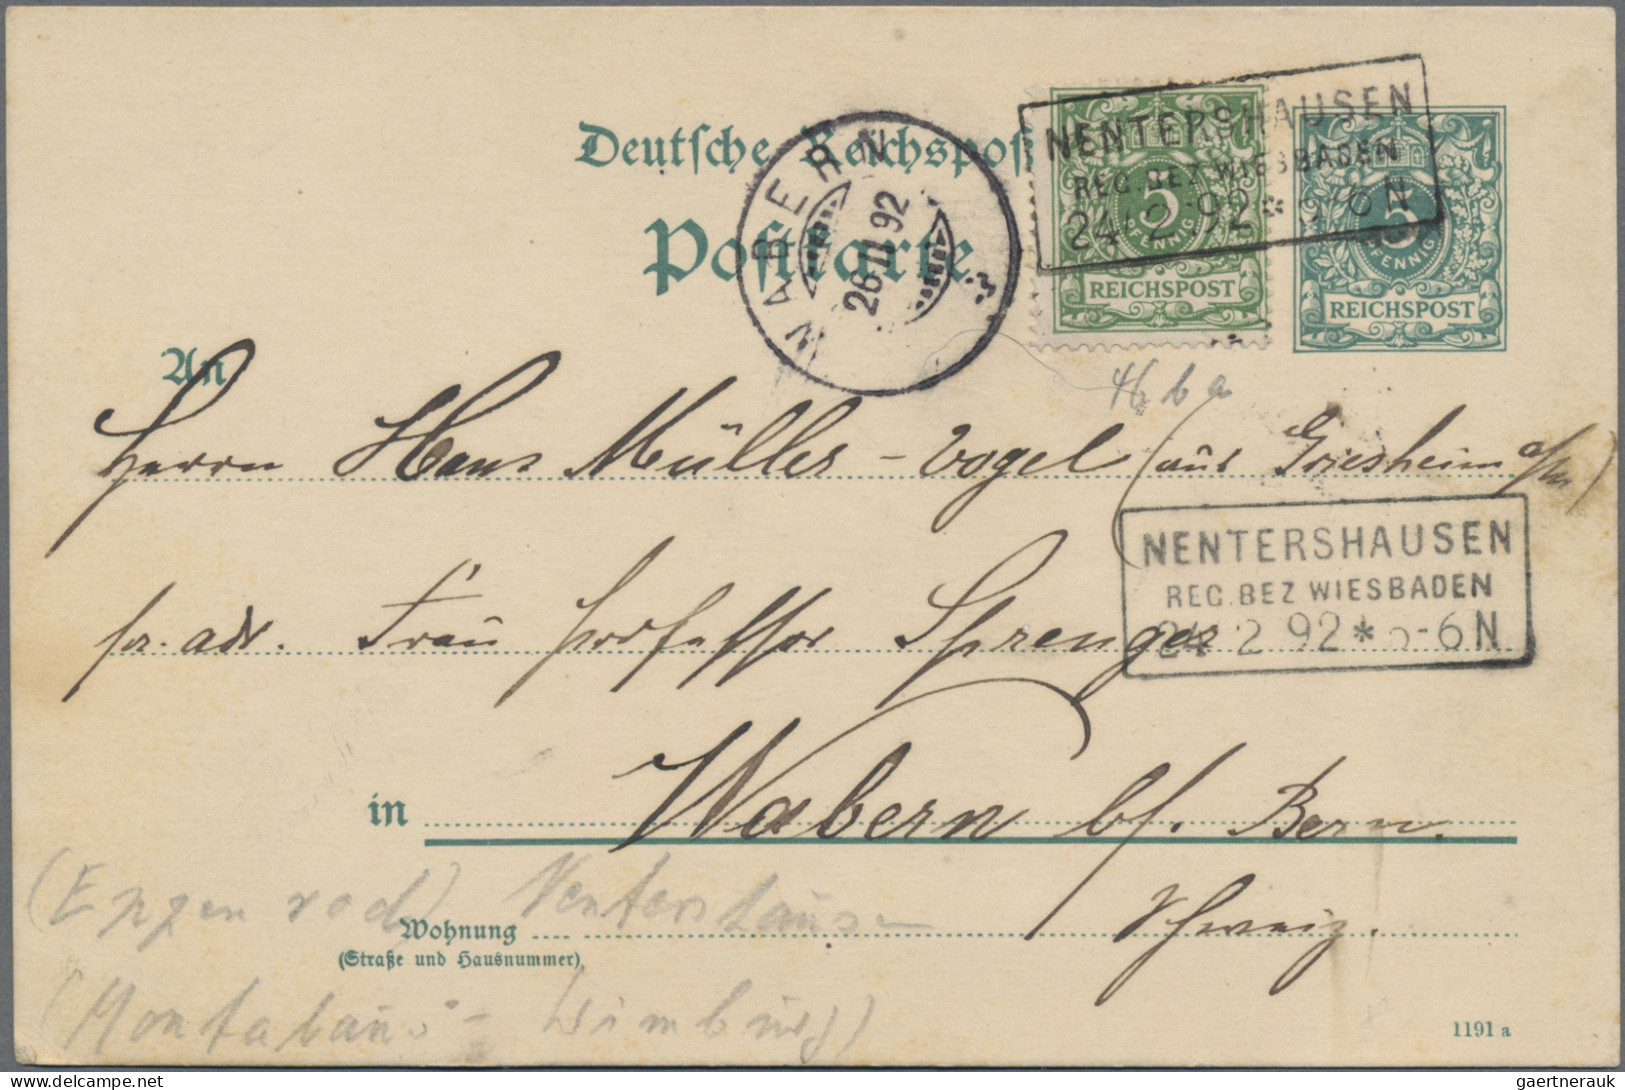 Deutsche Reichspost
Postkarte
WABERN
26 II 92
NENTERSHAUSEN
REG. BEZ WIESBADEN
24 2 92 * 5-6 N
5
PFENNIG
REICHSPOST
5
PFENNIG
REICHSPOST
46 b a
An
Herrn Hans Müller-Vogel (aus Griesheim a/m)
pr. adr. Frau Professor Sprenger
NENTERSHAUSEN
REG. BEZ WIESBADEN
24 2 92 * 5-6 N
in Wabern bf. Bern.
Schweiz.
(Eppenrod) Nentershausen
Wohnung
(Straße und Hausnummer)
(Montabaur - Limburg)
1191 a
gaertnerauk